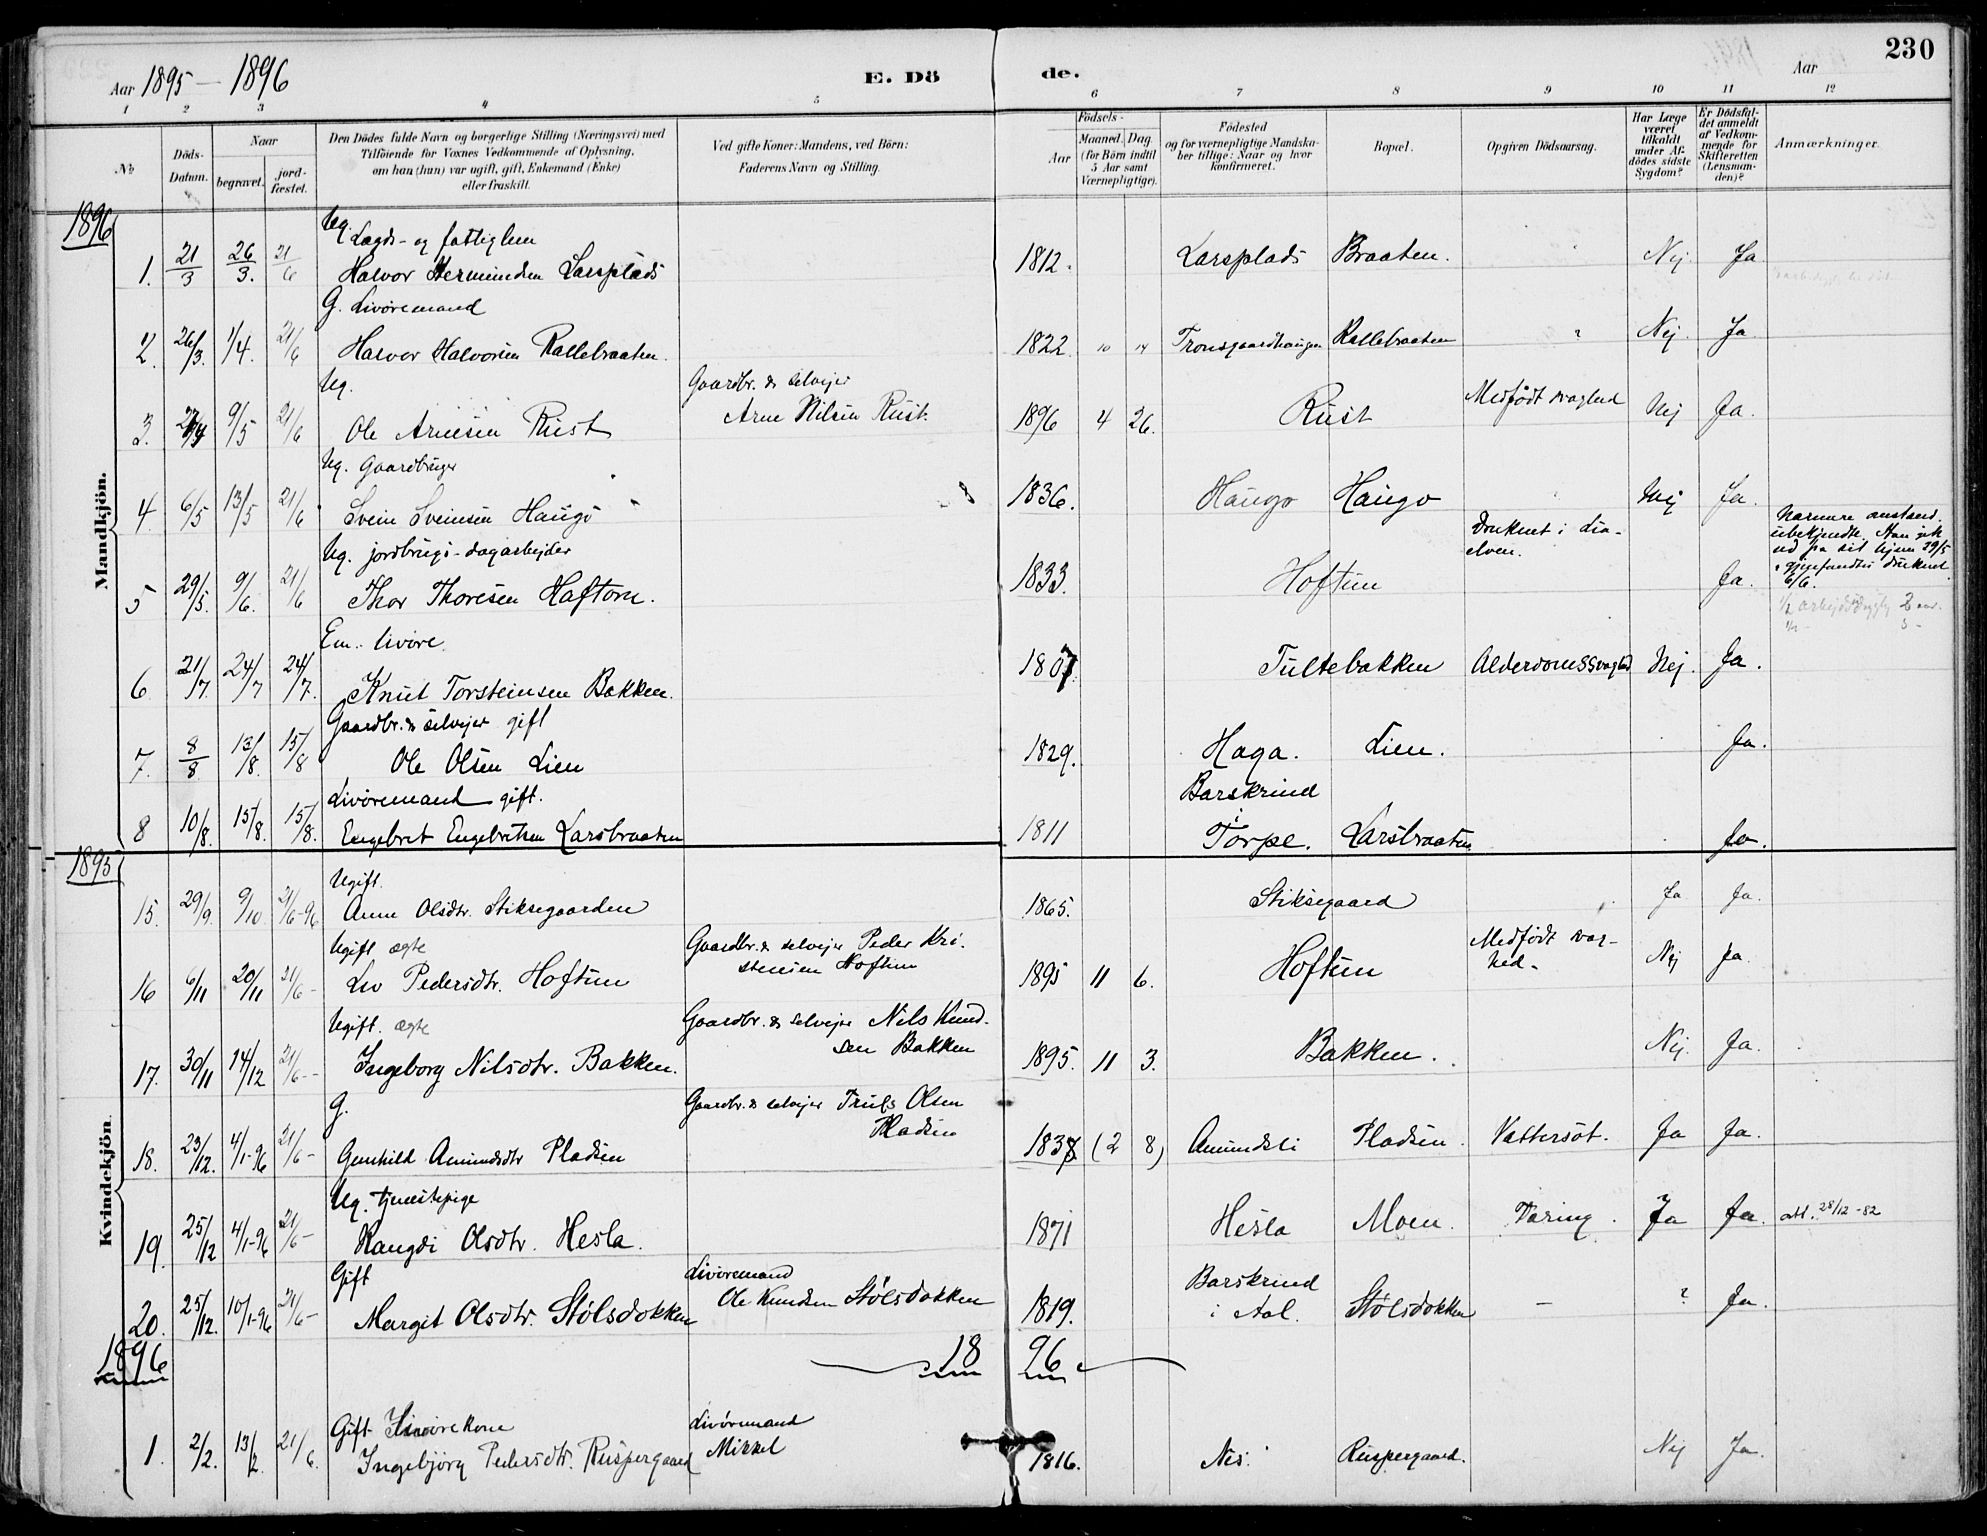 230
Aar 1895 - 1896 E. Dö de. Aar
1 2 3 4 5 6 7 8 9 10 11 12
No
Döds-Datum.
Naar
begravet.
jord-fæstet.
Den Dödes fulde Navn og borgerlige Stilling (Næringsvei) med
Tilföiende for Voxnes Vedkommende af Oplysning,
om han (hun) var ugift, gift, Enkemand (Enke)
eller fraskilt.
Ved gifte Koner: Mandens, ved Börn:
Faderens Navn og Stilling.
Födsels-
Aar
Maaned. Dag.
(for Börn indtil
5 Aar samt
Værnepligtige).
Födested
og for værnepligtige Mandska-
ber tillige: Naar og hvor
konfirmeret.
Bopæl.
Opgiven Dödsaarsag.
Har Læge
været
tilkaldt
under Af-
dödes sidste
Sygdom?
Er Dödsfal-
det anmeldt
af Vedkom-
mende for
Skifteretten
(Lensman-
den)?
Anmærkninger.
Mandkjön.
1896
Ug. Lægds- og fattiglem
1. 21/3 26/3. 21/6 Halvor Hermundsen Larsplads 1812. Larsplads Braaten. Nej. Ja
G. Livøremand
2. 26/3. 1/4. 21/6 Halvor Halvorsen Rallebraaten. 1822 10 14 Tronsgaardhaugen Rallebraaten ? Nej. Ja.
Ug. Gaardbr. & selvejer
3. 27/4 9/5 21/6 Ole Arnesen Rust Arne Nilsen Rust. 1896 4 26. Rust Medfødt svaghed Nej Ja.
Ug. Gaardbruger
4 6/5 13/5 21/6 Svein Sveinsen Haugo 1836. Haugo Haugo Nej Ja.
Ug. jordbrugs-dagarbejder
5 29/5. 9/6. 21/6 Thor Thoresen Haftorn. 1833. Hoftun Druknet i Lia-
elven. Ja.
Nærmere omstænd.
ubekjendte. Han gik
ud fra sit hjem 29/5
& gjenfandtes druknet
6/6.
Em. livøre.
6 21/7. 24/7 24/7. Knut Torsteinsen Bakken. 1807. Tultebakken Alderdomssvaghed Nej. Ja.
Gaardbr. & selvejer gift
7. 8/8 13/8. 15/8 Ole Olsen Lien 1829. Haga. Lien. Ja.
Livøremand gift.
8 10/8. 15/8. 15/8. Engebret Engebretsen Larsbraaten 1811 Barskrind
i
Torpe. Larsbraaten Ja.
Kvindekjön.
1895
Ugift.
15. 29/9. 9/10 21/6-96 Anne Olsdtr. Stiksegaarden 1865. Stiksegaard Ja Ja.
Ugift ægte Gaardbr. & selvejer Peder Kri-
stensen Hoftun
16 6/11 20/11 21/6- Liv Pedersdtr. Hoftun 1895 11 6. Hoftun Medfødt svag-
hed- Nej Ja.
Ugift. ægte Gaardbr. & selvejer Nils Knud-
sen Bakken
17. 30/11 14/12 21/6- Ingeborg Nilsdtr. Bakken. 1895. 11 3. Bakken. Nej. Ja.
G. Gaardbr. & selvejer Truls Olsen
Pladsen
18. 23/12. 4/1-96 21/6- Gunhild Amundsdtr Pladsen 1838 (2 8) Amundsli Pladsen. Vattersot. Ja Ja.
Ug. tjenestepige
19. 25/12 4/1-96 21/6- Rangdi Olsdtr. Hesla. 1871 Hesla Moen. Tæring. Ja Ja. att. 28/12-82
Gift Livøremand
20. 25/12. 10/1-96 21/6- Margit Olsdtr. Stølsdokken Ole Knudsen Stølsdokken 1819. Barskrind
i Aal. Stølsdokken - ? Ja.
1896 18 96
Gift Livørekone Livøremand
1. 2/2. 13/2. 21/6. Ingebjørg Pedersdtr. Ruspergaard Mikkel 1816. Nes. Ruspergaard. Nej Ja.